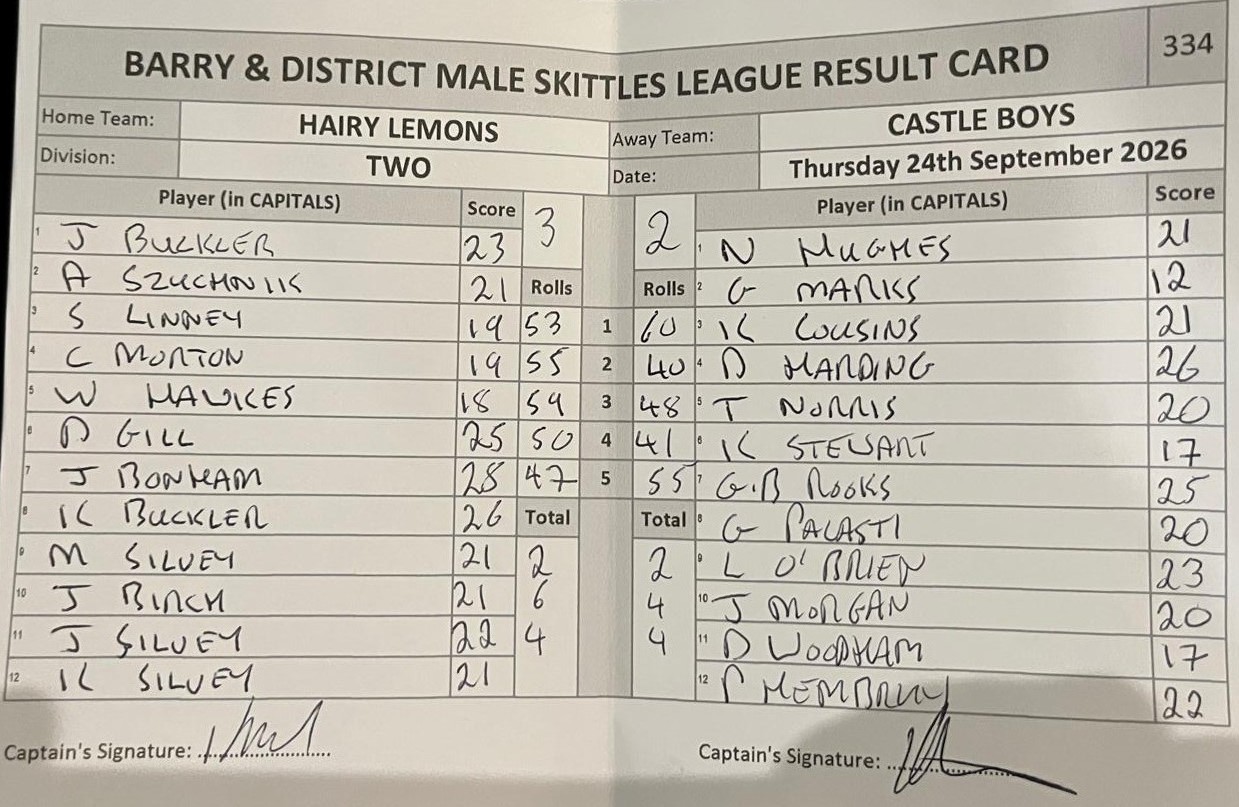 BARRY & DISTRICT MALE SKITTLES LEAGUE RESULT CARD 334
Home Team: HAIRY LEMONS Away Team: CASTLE BOYS
Division: TWO Date: Thursday 24th September 2026
Player (in CAPITALS) Score 3 2 Player (in CAPITALS) Score
1 J BUCKLER 23 1 N HUGHES 21
2 A SZUCHNIK 21 Rolls Rolls 2 G MARKS 12
3 S LINNEY 19 53 1 60 3 K COUSINS 21
4 C MORTON 19 55 2 40 4 D HARDING 26
5 W HAWKES 18 59 3 48 5 T NORRIS 20
6 D GILL 25 50 4 41 6 K STEWART 17
7 J BONHAM 28 47 5 55 7 G.B ROOKS 25
8 K BUCKLER 26 Total Total 8 G PALASTI 20
9 M SILVEY 21 2 2 9 L O'BRIEN 23
10 J BIRCH 21 6 4 10 J MORGAN 20
11 J SILVEY 22 4 4 11 D WOODHAM 17
12 K SILVEY 21 12 P 22
Captain's Signature: Captain's Signature: